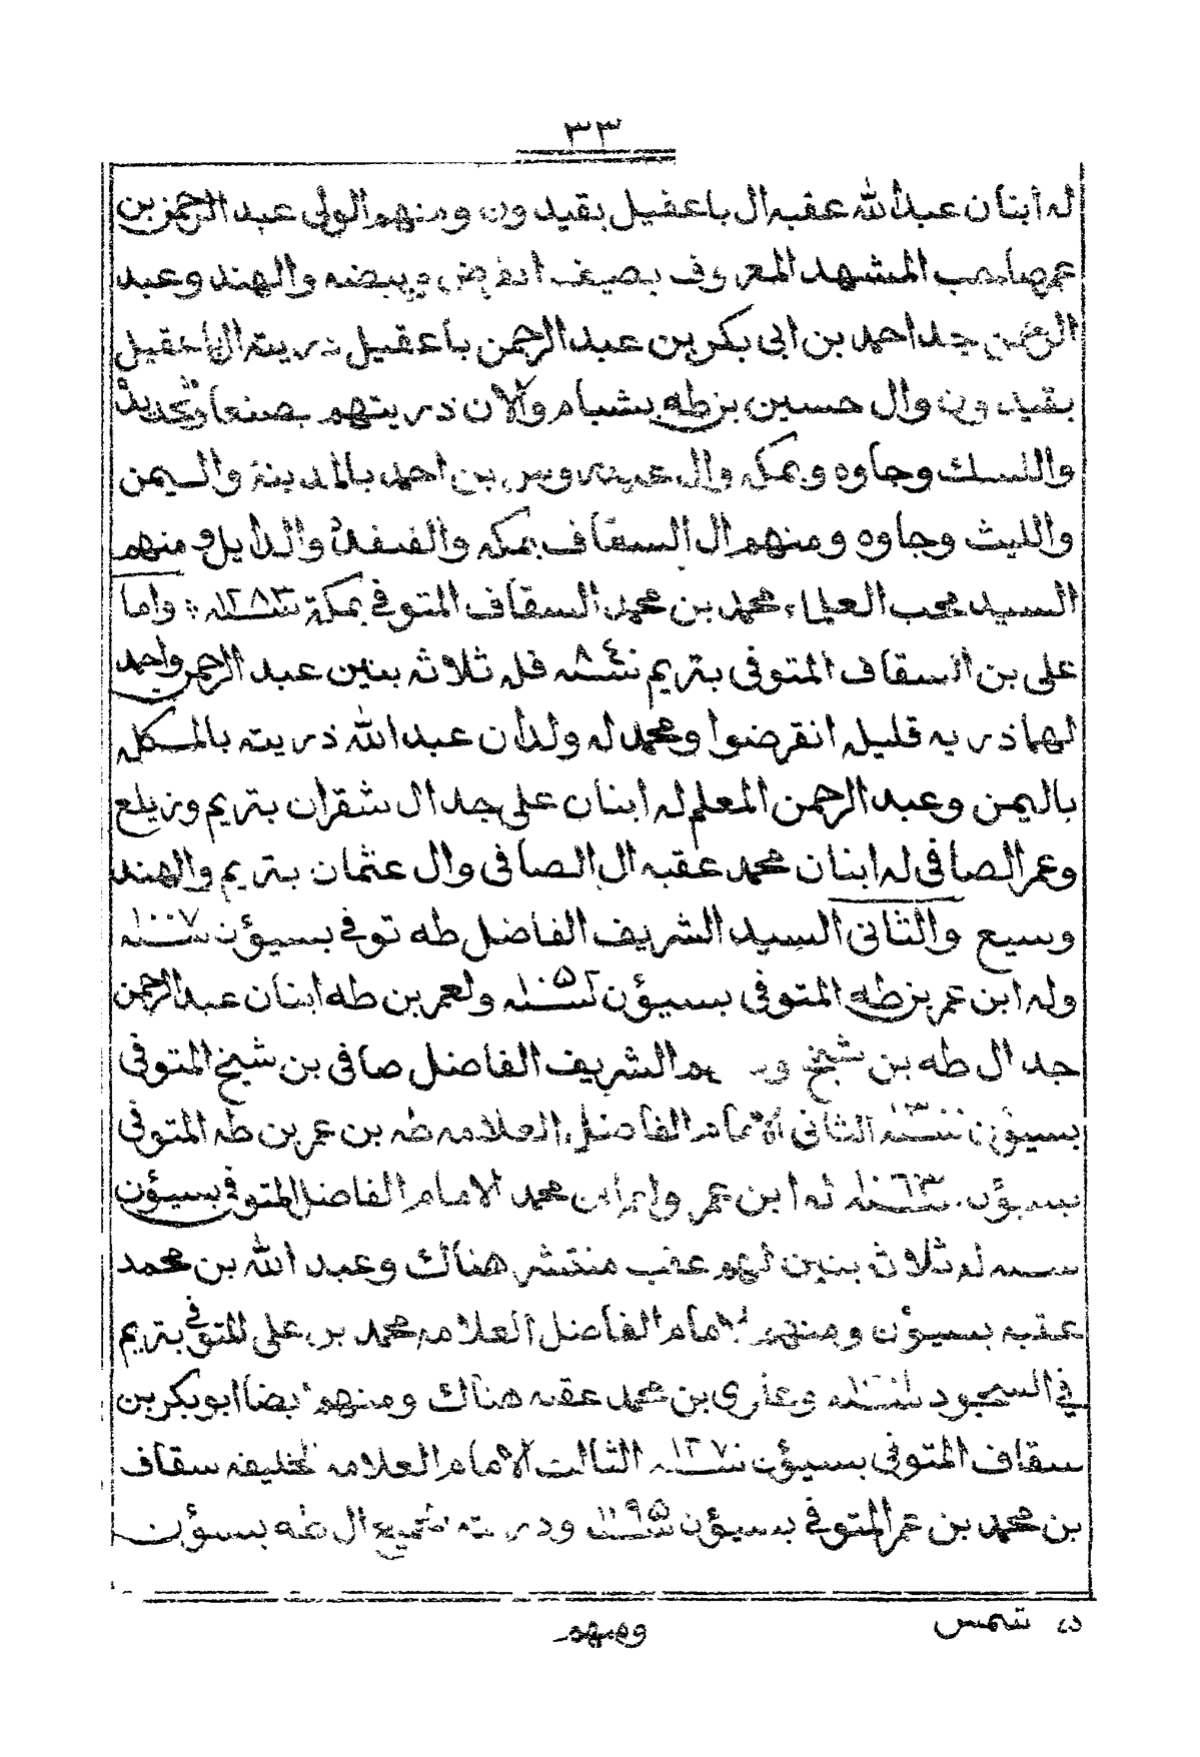 ٣٣
له ابنان عبدالله عقبه ال باعقيل بقيدون ومنهم الولي عبد الرحمن بن
عمر صاحب المشهد المعروف بصيف انقرض وبيضه والهند وعبد
الرحمن جد احمد بن ابي بكر بن عبد الرحمن باعقيل ذريته ال باعقيل
بقيدون وال حسين بن طه بشبام والان ذريتهم بصنعا
والنسك وجاوه وبمكه وال عيدروس بن احمد بالمدينة واليمن
والليث وجاوه ومنهم ال السقاف بمكه والقنفذه والدايل ومنهم
السيد محب العلماء محمد بن محمد السقاف المتوفي بمكة سنة ١٢٨٣ : واما
علي بن السقاف المتوفي بتريم سنة ٨٤٠ فله ثلاثة بنين عبد الرحمن واحمد
لهما ذريه قليل انقرضوا ومحمد له ولدان عبدالله ذريته بالمكلا
باليمن وعبد الرحمن المعلم له ابنان علي جد ال شقران بتريم وزيلع
وعمر الصافي له ابنان محمد عقبه ال الصافي وال عثمان بتريم والهند
وسيع والثاني السيد الشريف الفاضل طه توفي بسيؤن سنة ١٠٠٧
وله ابن عمر بن طه المتوفي بسيؤن سنة ١٠٥٢ ولعمر بن طه ابنان عبد الرحمن
جد ال طه بن شيخ الشريف الفاضل صافي بن شيخ المتوفي
بسيؤن سنة ١٣٠٠ الثاني الامام الفاضل العلامه طه بن عمر بن طه المتوفي
بسيؤن سنة ١٠٦٣ له ابن عمر ولعمر ابن محمد الامام الفاضل المتوفي بسيؤن
سنه له ثلاثة بنين لهم عقب منتشر هناك وعبد الله بن محمد
عقبه بسيؤن ومنهم الامام الفاضل العلامه محمد بن علي المتوفي بتريم
في السجود سنة وعلوي بن محمد عقبه هناك ومنهم ايضا ابوبكر بن
سقاف المتوفي بسيؤن سنة ١٢٧٠ الثالث الامام العلامه الخليفه سقاف
بن محمد بن عمر المتوفي بسيؤن سنة ١١٩٥ وذريته جميع ال طه بسيؤن
شمس
ومنهم